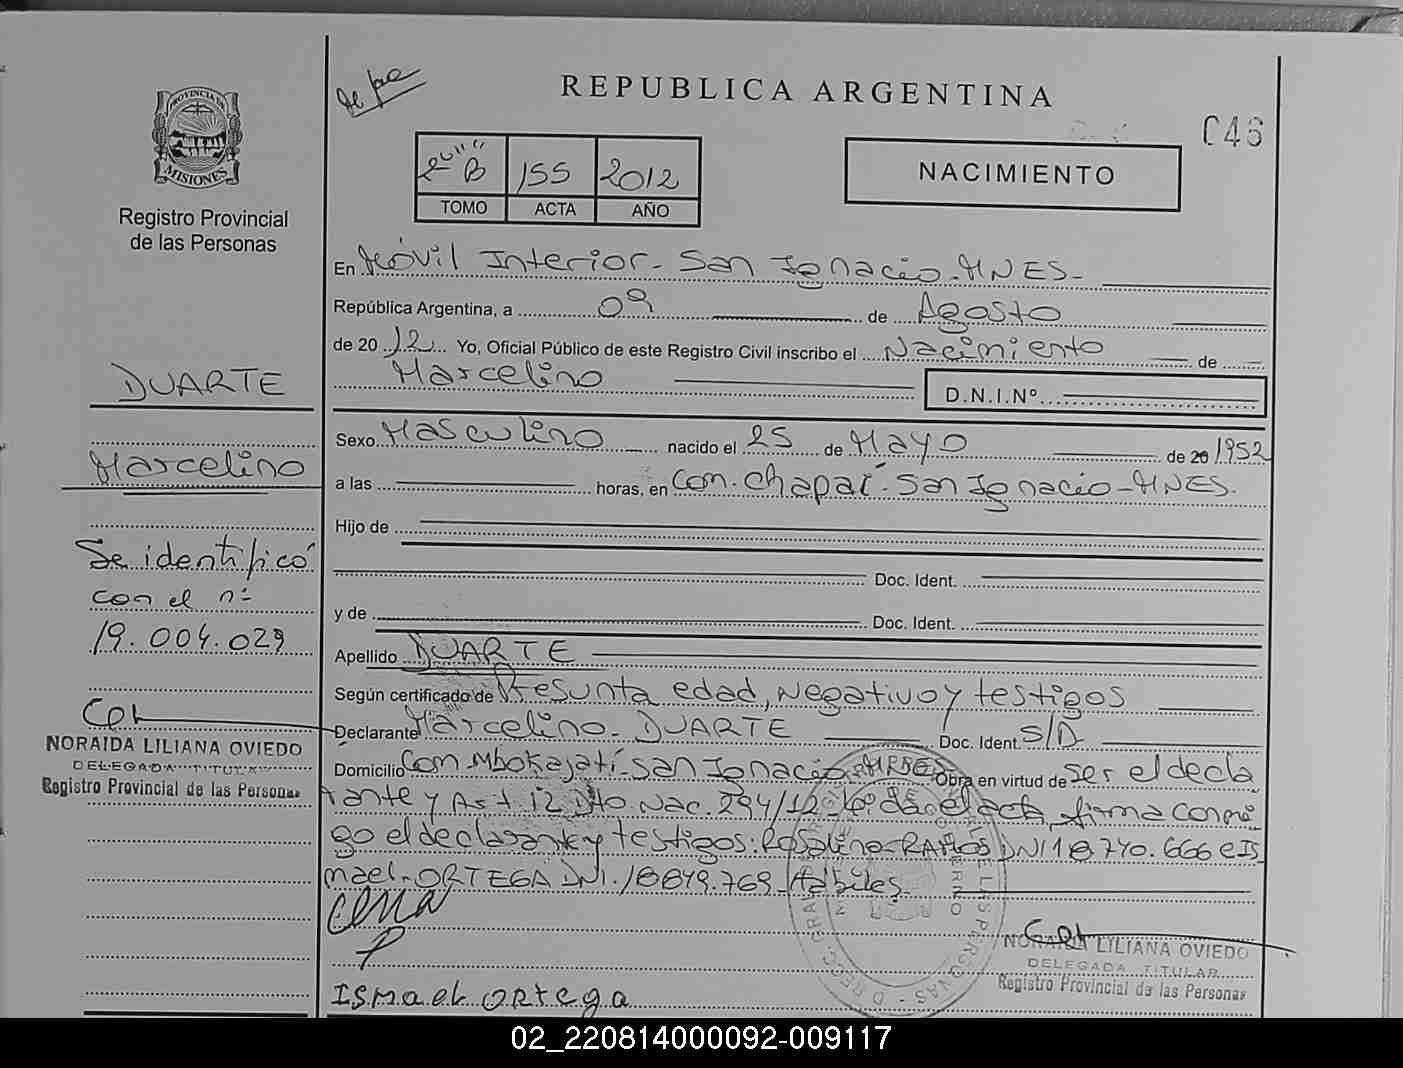 REPUBLICA ARGENTINA
046
PROVINCIA DE
MISIONES
Registro Provincial
de las Personas
2º B 155 2012
TOMO ACTA AÑO
NACIMIENTO
En Móvil Interior - San Ignacio - MNES -
República Argentina, a 09 de Agosto
de 20 12 Yo, Oficial Público de este Registro Civil inscribo el Nacimiento de
Marcelino D.N.I.Nº
Sexo Masculino nacido el 25 de Mayo de 20 1952
a las horas, en Com. Chapaí - San Ignacio - MNES.
Hijo de
Doc. Ident.
y de Doc. Ident.
Apellido DUARTE
Según certificado de Presunta edad, Negativo y testigos
Declarante Marcelino - DUARTE Doc. Ident. S/D
Domicilio Com. Mbokajatí - San Ignacio - MNES Obra en virtud de ser el decla
rante y Art 12 Dto. Nac. 294/12 - Leída el acta, firma conmi
go el declarante y testigos: Rosalino - RAMOS DNI 18.740.666 e Is
mael - ORTEGA DNI. 18849.769 - Hábiles -
Ismael ortega
NORAIDA LILIANA OVIEDO
DELEGADA TITULAR
Registro Provincial de las Personas
DUARTE
Marcelino
Se identificó
con el nº
19.004.029
NORAIDA LILIANA OVIEDO
DELEGADA TITULAR
Registro Provincial de las Personas
02_220814000092-009117